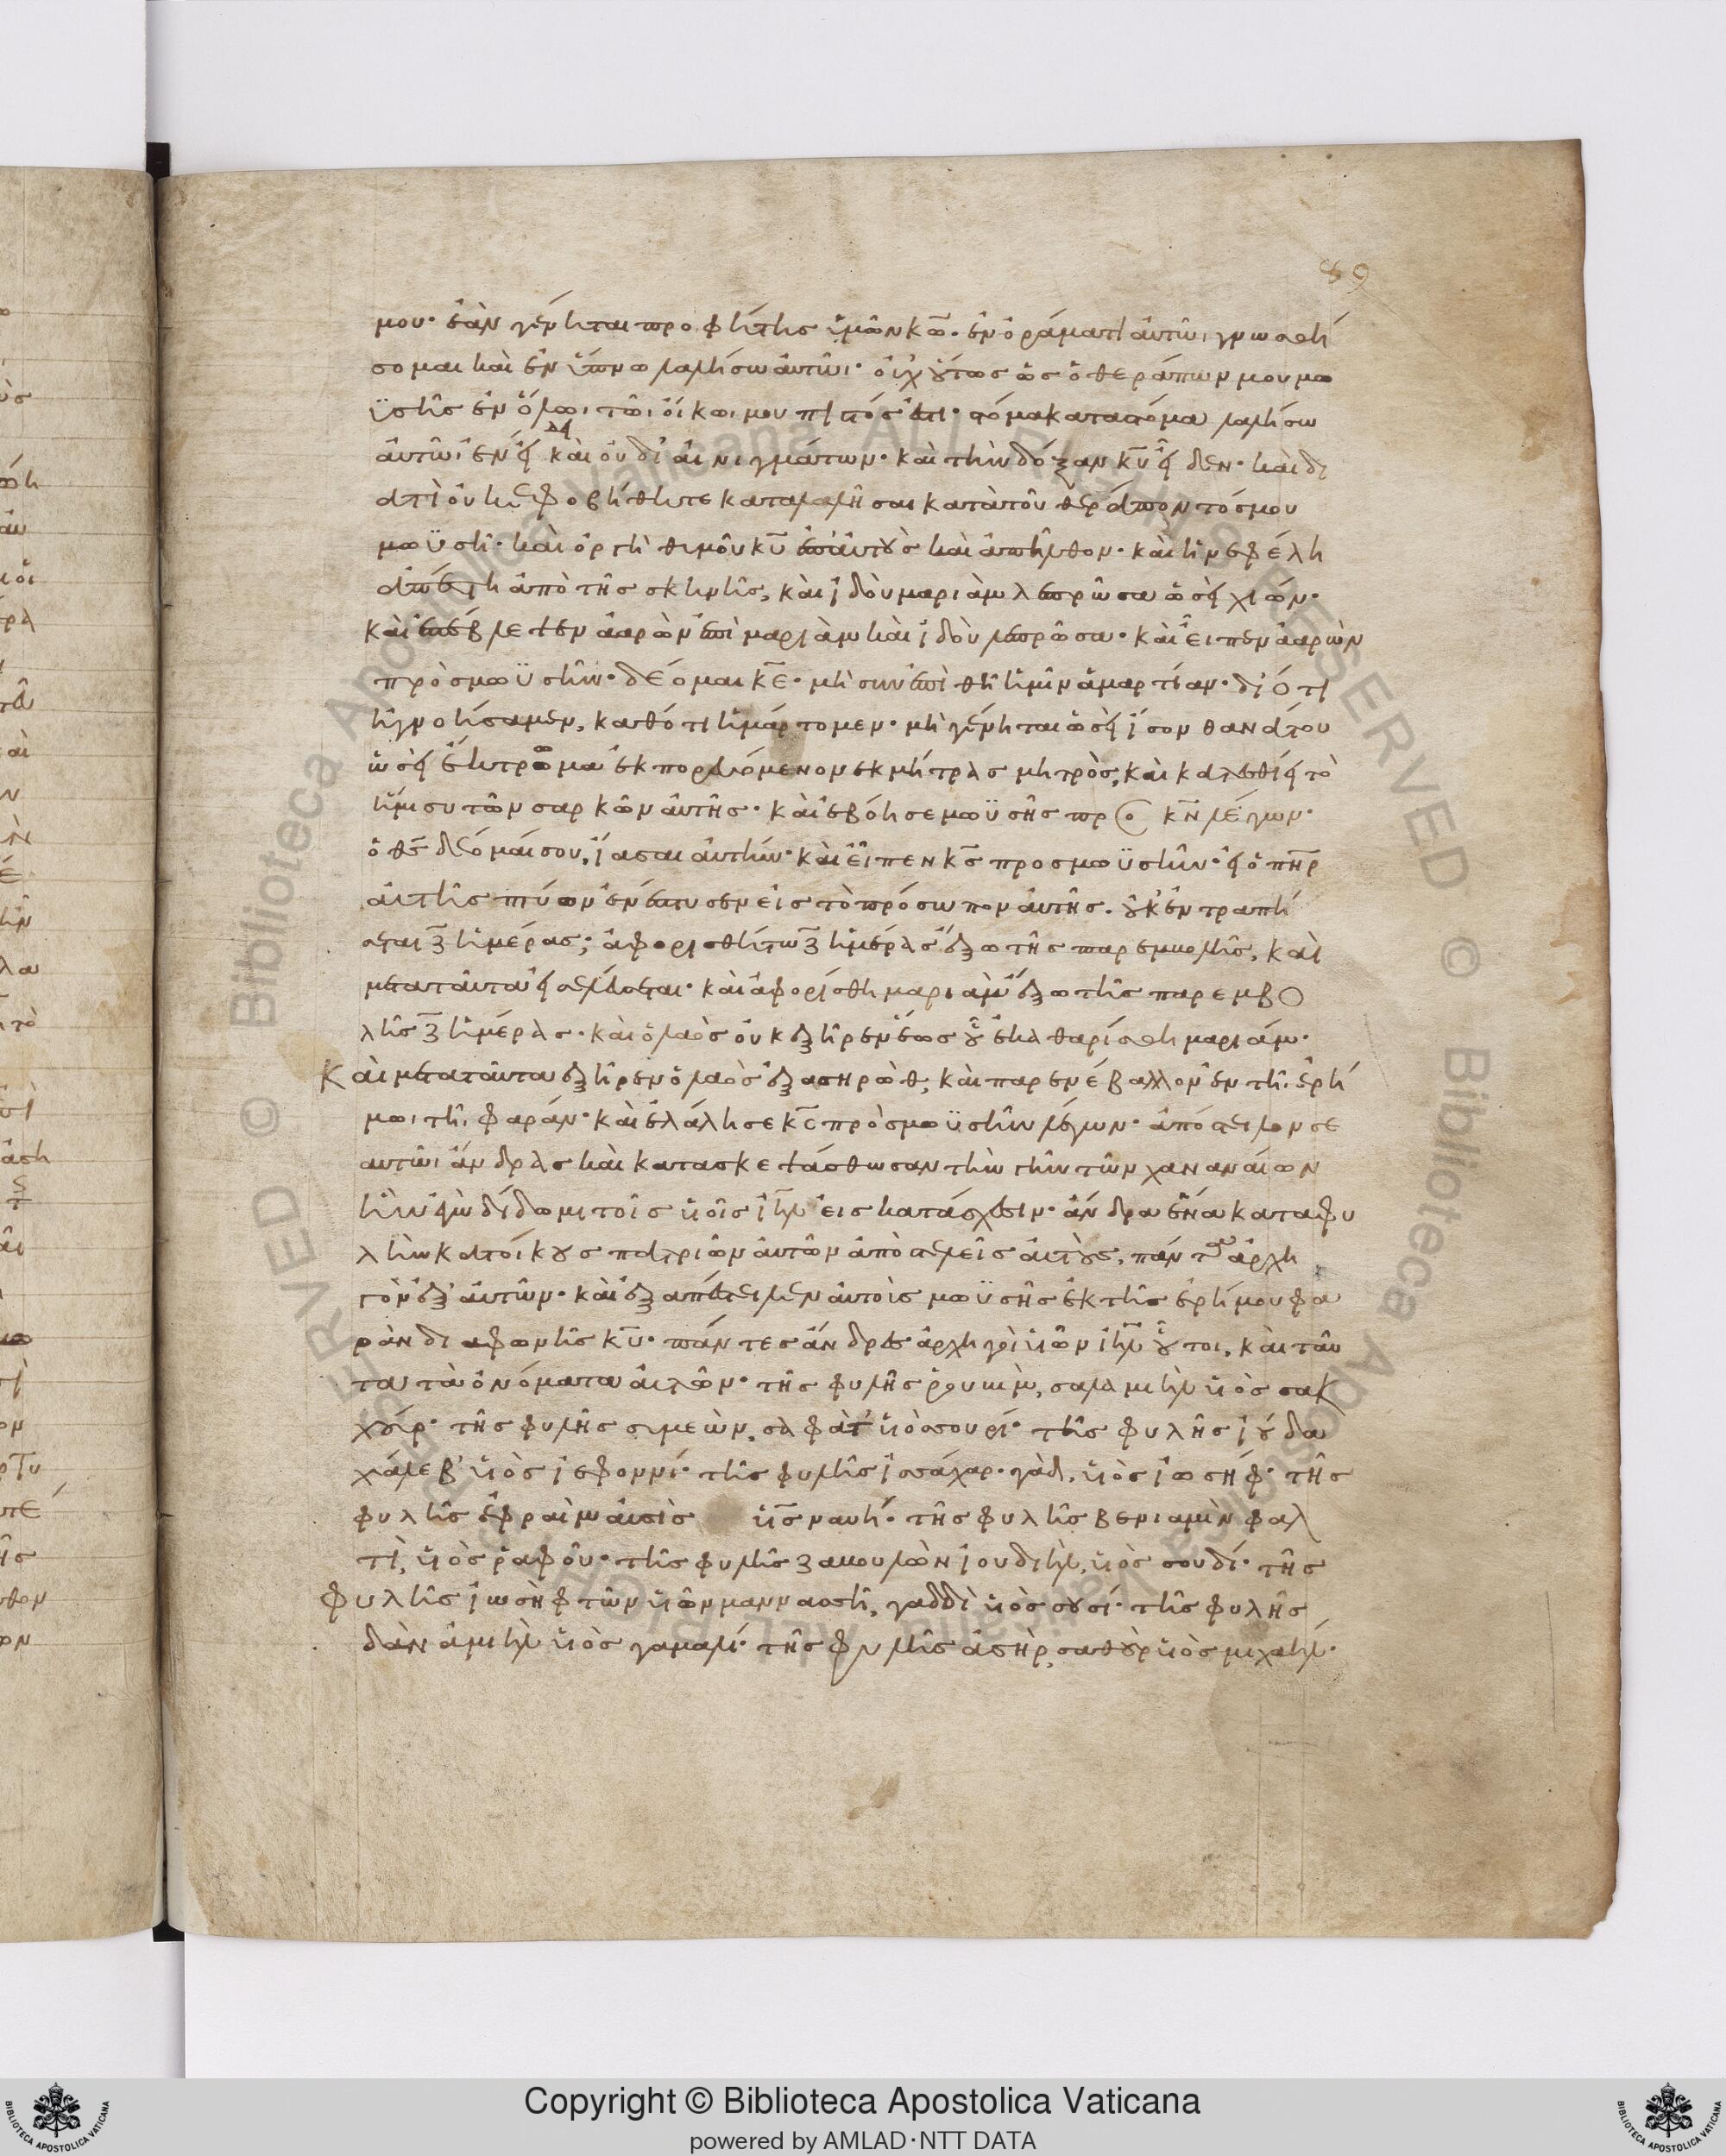 89
μου· ἐὰν γένηται προφήτης ὑμῶν κω̅· ἐν ὁράματι αὐτῶι γνωσθή
σομαι καὶ ἐν ὕπνω λαλήσω αὐτῶι· οὐχ οὕτως ὡς ὁ θεράπων μου μω
ϋσῆς ἐν ὅλωι τῶι οἴκωι μου πιστός ἐστι· στόμα κατα στόμα λαλήσω
αὐτῶι ἐν εἴδει καὶ οὐ δι’ αἰνιγμάτων· καὶ τὴν δόξαν κυ̅ εἶδεν· καὶ δι
ατὶ οὐκ ἐφοβήθητε καταλαλῆσαι κατὰ τοῦ θεράποντός μου
μωϋσῆ· καὶ ὀργὴ θυμοῦ κυ̅ ἐπ’ αὐτοὺς καὶ ἀπῆλθον· καὶ ἡ νεφέλη
ἀπέστη ἀπὸ τῆς σκηνῆς, καὶ ἰδοὺ μαριὰμ λεπρῶσα ὡσεὶ χιών·
καὶ ἐπέβλεψεν ἀαρὼν ἐπὶ μαριὰμ καὶ ἰδοὺ λεπρῶσα· καὶ εἶπεν ἀαρὼν
πρὸς μωϋσῆν· δέομαι κε̅· μὴ συνεπιθῇ ἡμῖν ἁμαρτίαν· διότι
ἠγνοήσαμεν, καθότι ἡμάρτομεν· μὴ γένηται ὡσεὶ ἴσον θανάτου
ὡσεὶ ἔκτρωμα ἐκπορευόμενον ἐκ μήτρας μητρὸς, καὶ κατεσθίει τὸ
ἥμισυ τῶν σαρκῶν αὐτῆς· καὶ ἐβόησε μωϋσῆς προ κν̅ λέγων·
ὁ θς̅ δέομαί σου, ἴασαι αὐτήν· καὶ εἶπεν κς̅ προς μωϋσῆν· εἰ ὁ πηρ̅
αὐτῆς πτύων ἐνέπτυσεν εἰς τὸ πρόσωπον αὐτῆς. οὐκ ἐντραπή
σεται ζ̅ ἡμέρας; ἀφορισθήτω ζ̅ ἡμέρας ἔξω τῆς παρεμβολῆς, καὶ
μετα ταῦτα εἰσελεύσεται· καὶ ἀφορίσθη μαριὰμ ἔξω τῆς παρεμβο
λῆς ζ̅ ἡμέρας· καὶ ὁ λαὸς οὐκ ἐξῆρεν ἕως οὗ ἐκαθαρίσθη μαριάμ·
Καὶ μετα ταῦτα ἐξῆρεν ὁ λαὸς ἐξ ασηρώθ, καὶ παρενέβαλλον ἐν τῆι ἐρή
μωι τῆι φαράν· καὶ ἐλάλησε κς̅ πρὸς μωϋσῆν λέγων· ἀπόστειλον σε
αυτῶι ἄνδρας καὶ κατασκεψάσθωσαν τὴν γῆν τῶν χαναναίων
ἣν ἐγὼ δίδωμι τοῖς υἱοῖς ιηλ̅ εις κατάσχεσιν· ἄνδρα ἕνα κατα φυ
λὴν κατοίκους πατριῶν αὐτῶν ἀποστελεῖς αὐτούς, πάντα ἀρχη
γὸν ἐξ αὐτῶν· καὶ ἐξαπέστειλεν αὐτοὺς μωϋσῆς ἐκ τῆς ἐρήμου φα
ρὰν δια φωνῆς κυ̅· πάντες ἄνδρες ἀρχηγοὶ υἱῶν ιηλ̅ οὗτοι, καὶ ταῦ
τα τὰ ὀνόματα αὐτῶν· τῆς φυλῆς ῥουβὶμ, σαλαμιὴλ υἱὸς σακ
χούρ· τῆς φυλῆς συμεὼν, σαφὰτ υἱὸς σουρί· τῆς φυλῆς ἰούδα
χάλεβ υἱὸς ἰεφοννί· τῆς φυλῆς ἰσσάχαρ· γὰλ, υἱὸς ἰωσήφ· τῆς
φυλῆς ἐφραὶμ αὐσὶς υἱς̅ ναυή· τῆς φυλῆς βενιαμὶν φαλ
τὶ, υἱὸς ῥαφοῦ· τῆς φυλῆς ζαβουλὼν ἰουδιὴλ, υἱὸς σουδί· τῆς
φυλῆς ἰωσὴφ τῶν υἱῶν μαννασσῆ, γαδδὶ υἱὸς σουσί· τῆς φυλῆς
δὰν ἀμιὴλ υἱὸς γαμαλί· τῆς φυλῆς ἀσὴρ, σαθοὺρ υἱὸς μιχαήλ·
Copyright © Biblioteca Apostolica Vaticana
powered by AMLAD·NTT DATA